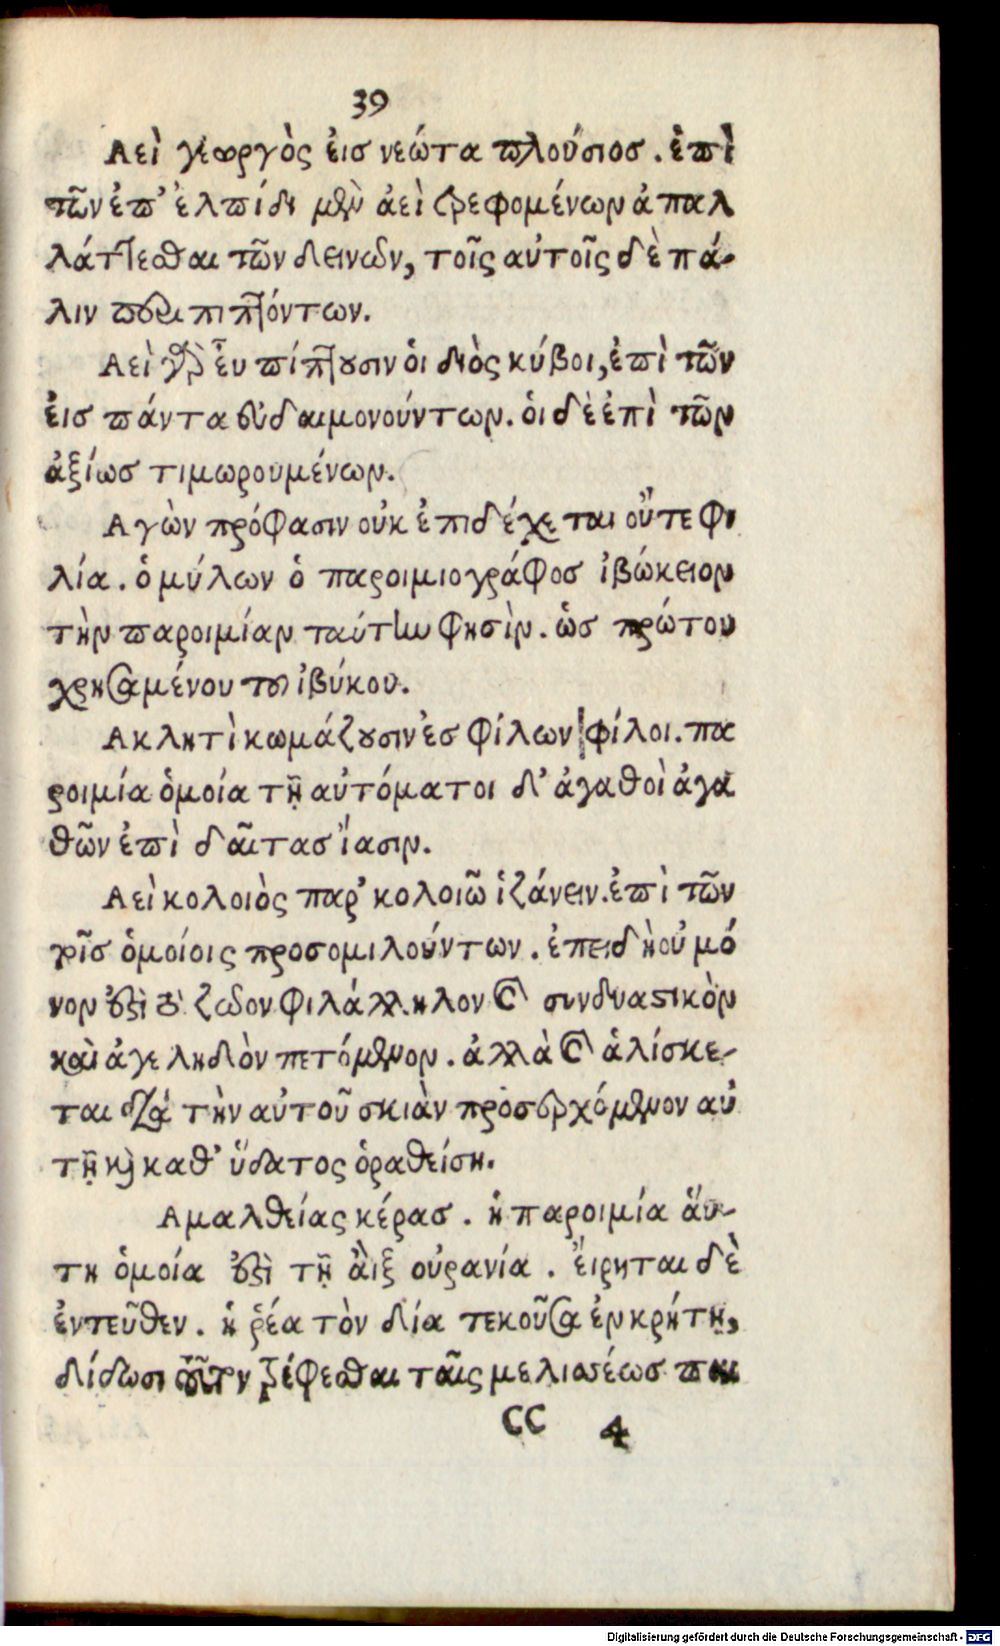 39
Αεὶ γεωργὸς ἐισ νεώτα πλούσιοσ . ἐπὶ
τῶν ἐπ' ἐλπίδι μὲν ἀεὶ τρεφομένων ἀπαλ
λάττεσθαι τῶν δεινῶν, τοῖς αὐτοῖς δὲ πά-
λιν περιπιπτόντων.
Αεὶ γὰρ ἖υ πίπτουσιν ὁι διὸς κύβοι, ἐπὶ τῶν
ἐισ πάντα εὐδαιμονούντων. ὁι δὲ ἐπὶ τῶν
ἀξίωσ τιμωρουμένων.
Αγὼν πρόφασιν οὐκ ἐπιδέχεται οὔτε φι
λία . ὁ μύλων ὁ παροιμιογράφοσ ἰβώκειον
τὴν παροιμίαν ταύτην φησὶν . ὡσ πρώτου
χρησαμένου τοῦ ἰβύκου.
Ακλητὶ κωμάζουσιν ἐσ φίλων φίλοι. πα
ροιμία ὁμοία τῇ αὐτόματοι δ' ἀγαθοὶ ἀγα
θῶν ἐπὶ δαῖτασ ἴασιν.
Αεὶ κολοιὸς παρ' κολοιῷ ἱζάνειν. ἐπὶ τῶν
τοῖσ ὁμοίοις προσομιλούντων . ἐπειδὴ οὐ μό
νον ἐστὶ τὸ ζῶον φιλάλληλον καὶ συνδυαστικὸν
καὶ ἀγεληδὸν πετόμενον . ἀλλὰ καὶ ἁλίσκε-
ται διὰ τὴν αὐτοῦ σκιὰν προσερχόμενον αὐ
τῇ καὶ καθ' ὕδατος ὁραθείση.
Αμαλθείας κέρασ . ἡ παροιμία ἅυ-
τη ὁμοία ἐστὶ τῇ ἂιξ οὐρανία . ἔιρηται δὲ
ἐντεῦθεν . ἡ ῥέα τὸν δία τεκοῦσα ἐν κρήτῃ,
δίδωσι τρέφεσθαι ταῖς μελισσέωσ παι
CC 4
Digitalisierung gefördert durch die Deutsche Forschungsgemeinschaft - DFG